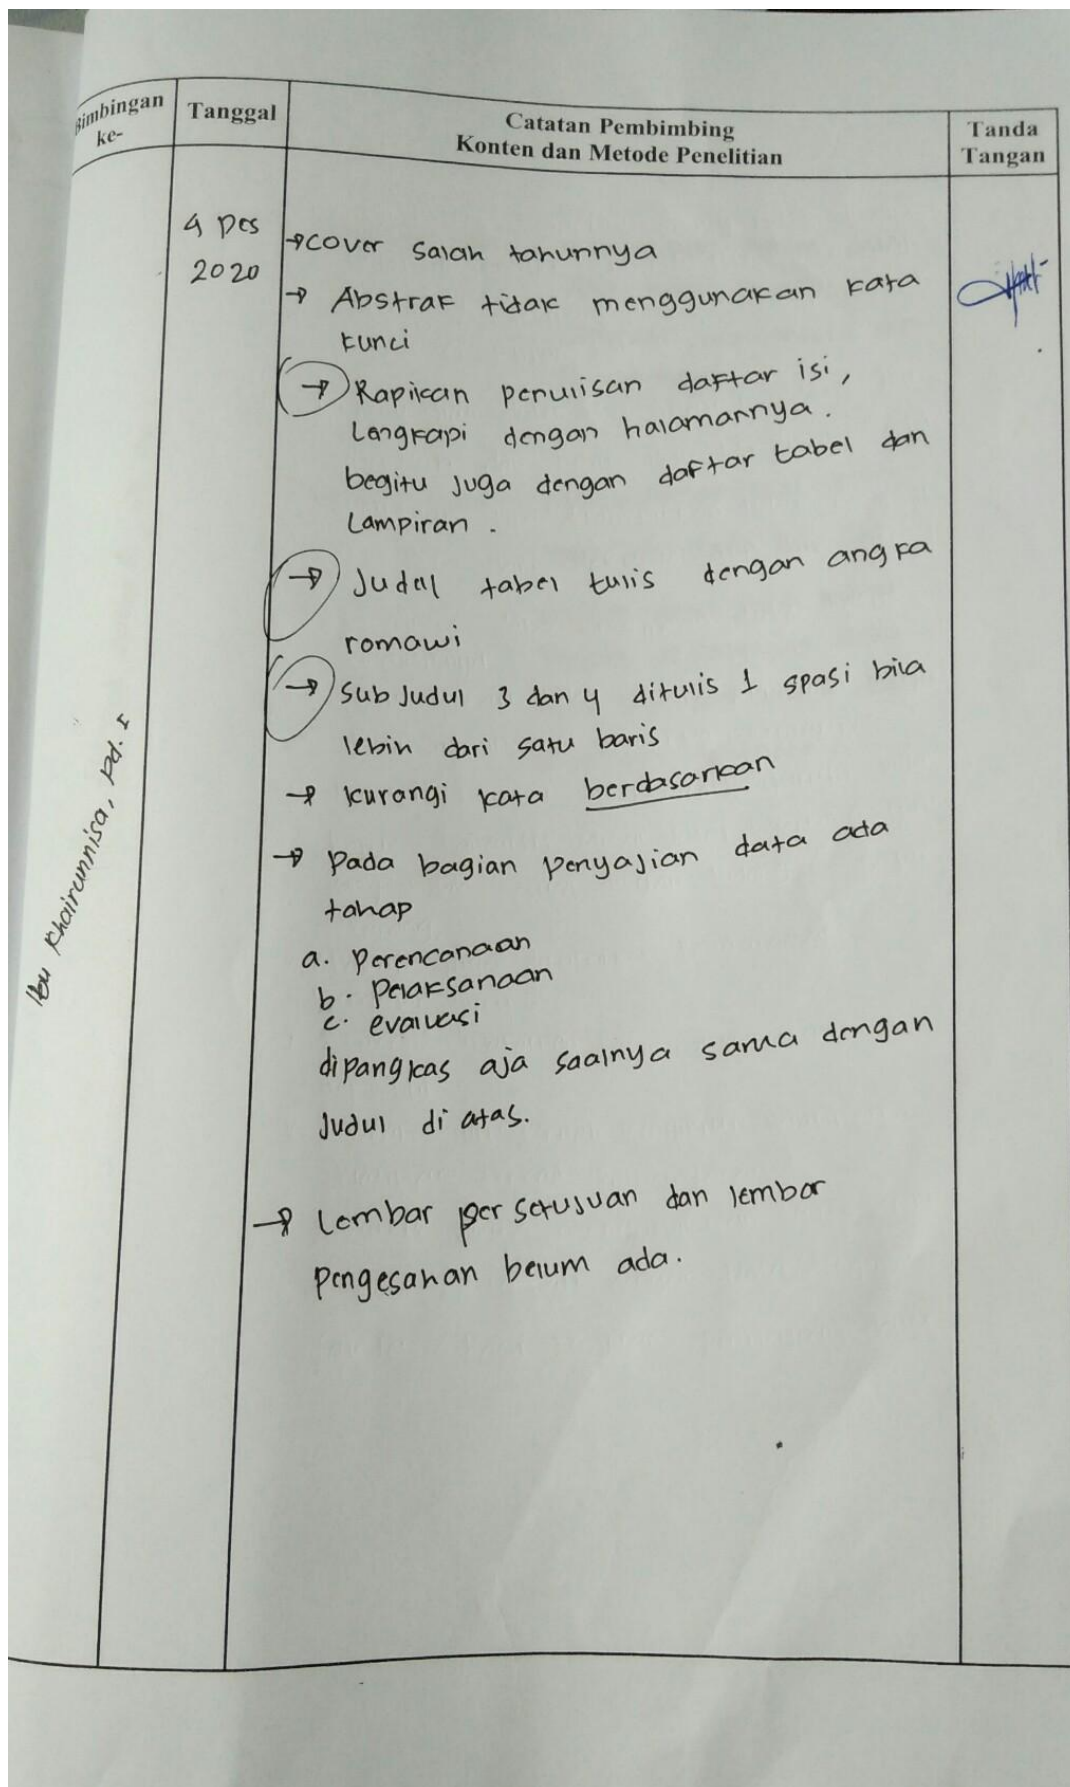 Bimbingan
ke-
Tanggal
Catatan Pembimbing
Konten dan Metode Penelitian
Tanda
Tangan
4 Des
2020
→ cover salah tahunnya
→ Abstrak tidak menggunakan kata
kunci
→ Rapikan penulisan daftar isi,
Lengkapi dengan halamannya.
begitu juga dengan daftar tabel dan
Lampiran.
→ Judul tabel tulis dengan angka
romawi
→ Sub Judul 3 dan 4 ditulis 1 spasi bila
lebih dari satu baris
→ kurangi kata berdasarkan
→ Pada bagian penyajian data ada
tahap
a. Perencanaan
b. Pelaksanaan
c. evaluasi
dipangkas aja soalnya sama dengan
Judul di atas.
→ Lembar persetujuan dan lembar
Pengesahan belum ada.
Ibu Khairunnisa, Pd. I